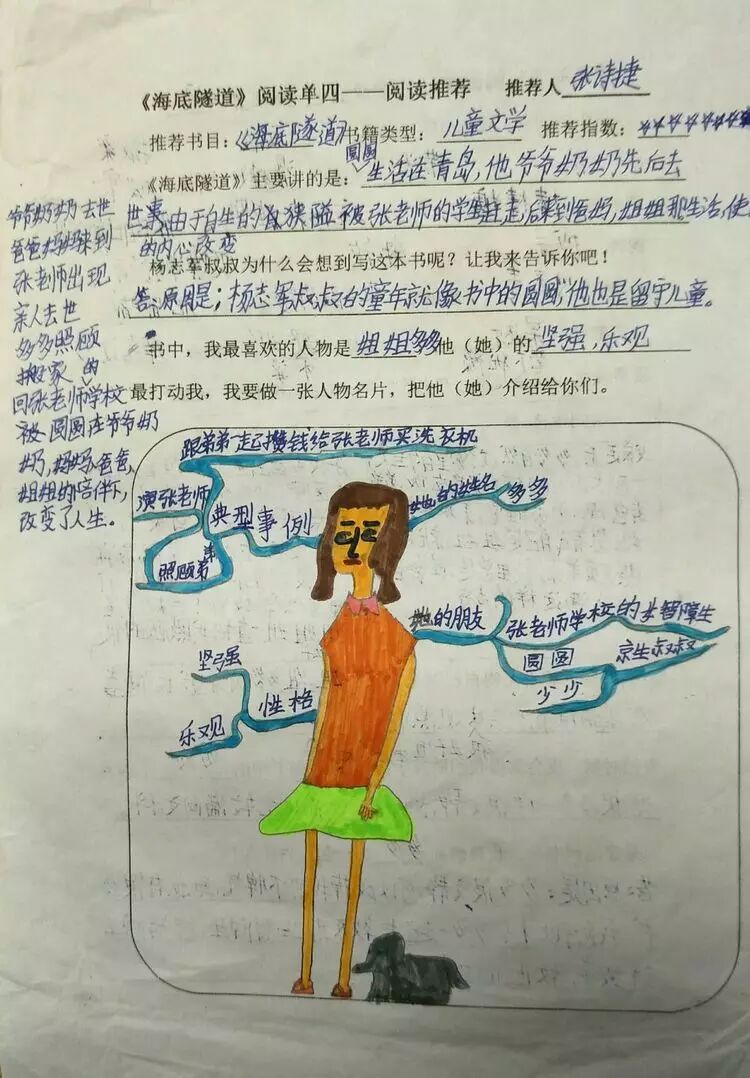 《海底隧道》阅读单四——阅读推荐 推荐人张诗捷
推荐书目：《海底隧道》书籍类型：儿童文学 推荐指数：
《海底隧道》主要讲的是：圆圆生活在青岛，他爷爷奶奶先后去
世，由于自生的狭隘被张老师的学生赶走，后来到爸妈，姐姐那生活，使
的内心改变
杨志军叔叔为什么会想到写这本书呢？让我来告诉你吧！
答：原因是；杨志军叔叔的童年就像书中的圆圆，他也是留守儿童。
书中，我最喜欢的人物是姐姐多多他（她）的坚强，乐观
最打动我，我要做一张人物名片，把他（她）介绍给你们。
爷爷奶奶去世
爸爸妈妈来到
张老师出现
亲人去世
多多照顾
搬家的
回张老师学校
被圆圆在爷爷奶
奶，妈妈，爸爸，
姐姐的陪伴下，
改变了人生。
跟弟弟一起攒钱给张老师买洗衣机
演张老师
典型事例
照顾弟弟
她的姓名
多多
她的朋友
张老师学校的女智障生
圆圆
京生叔叔
少少
坚强
性格
乐观